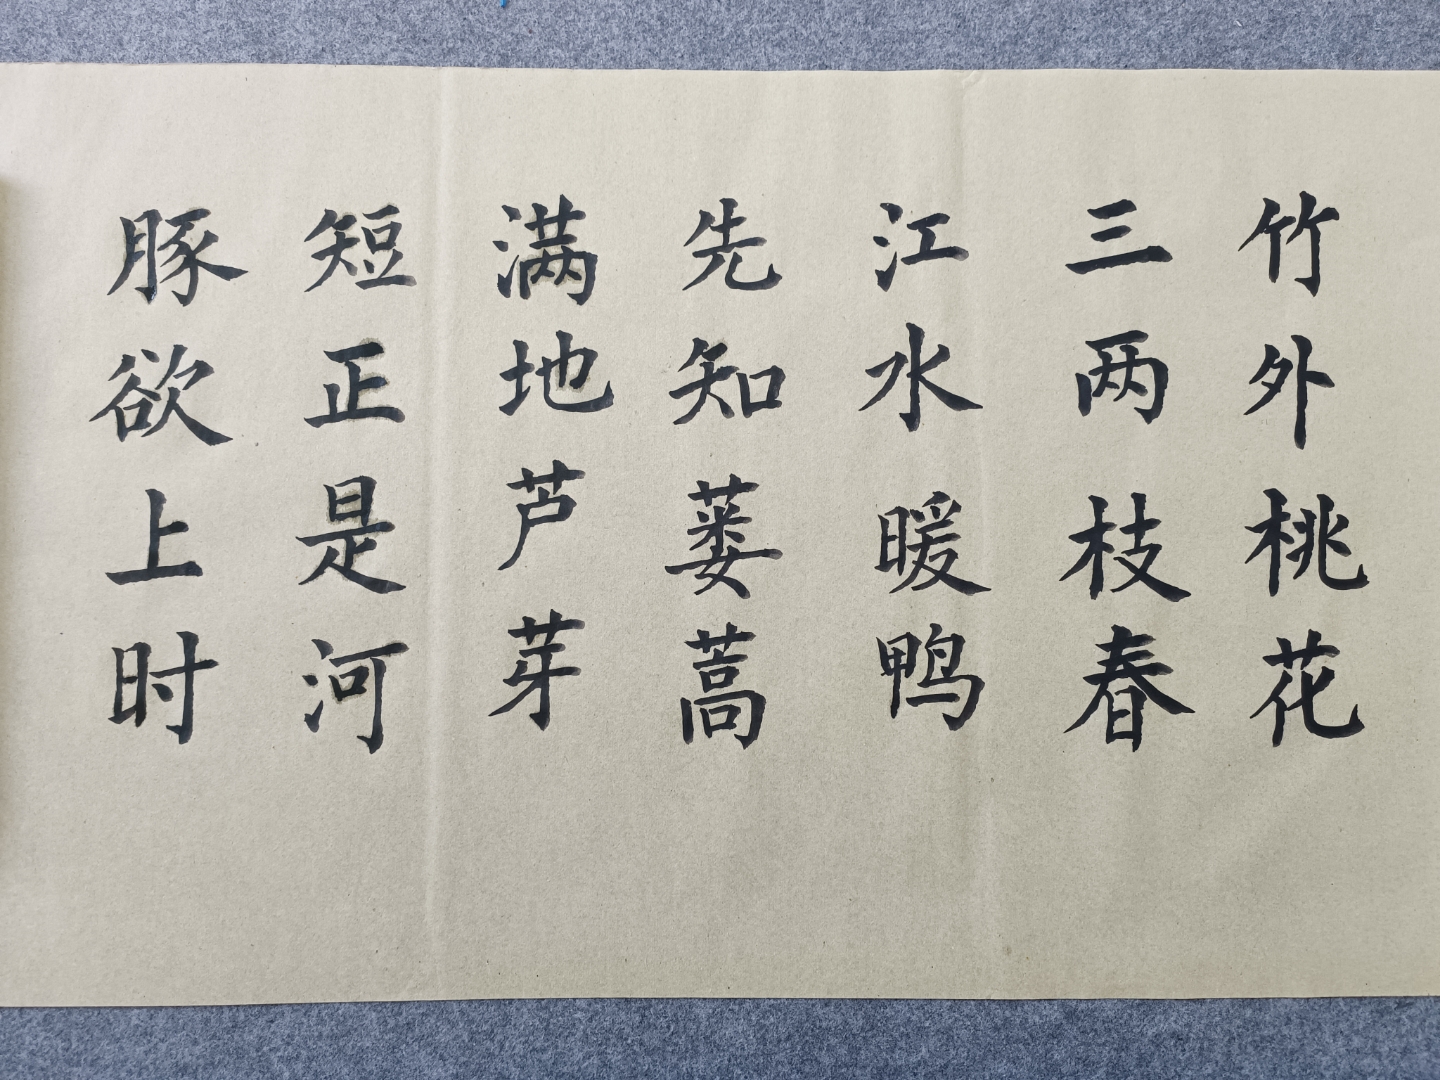 竹外桃花
三两枝春
江水暖鸭
先知蒌蒿
满地芦芽
短正是河
豚欲上时